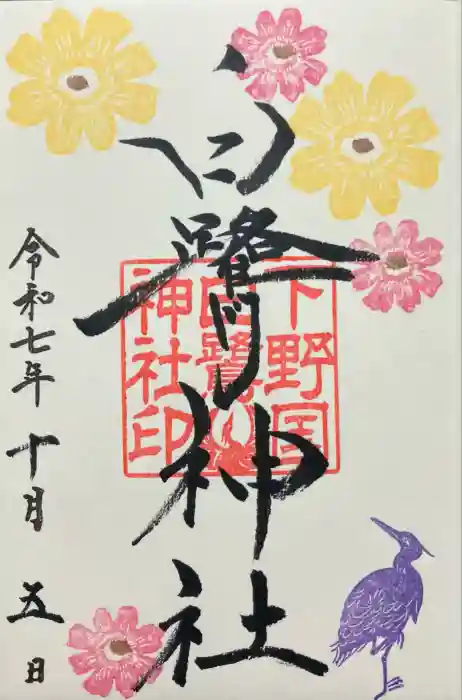 白鷺神社
下野国
白鷺
神社印
令和七年 十月 五日